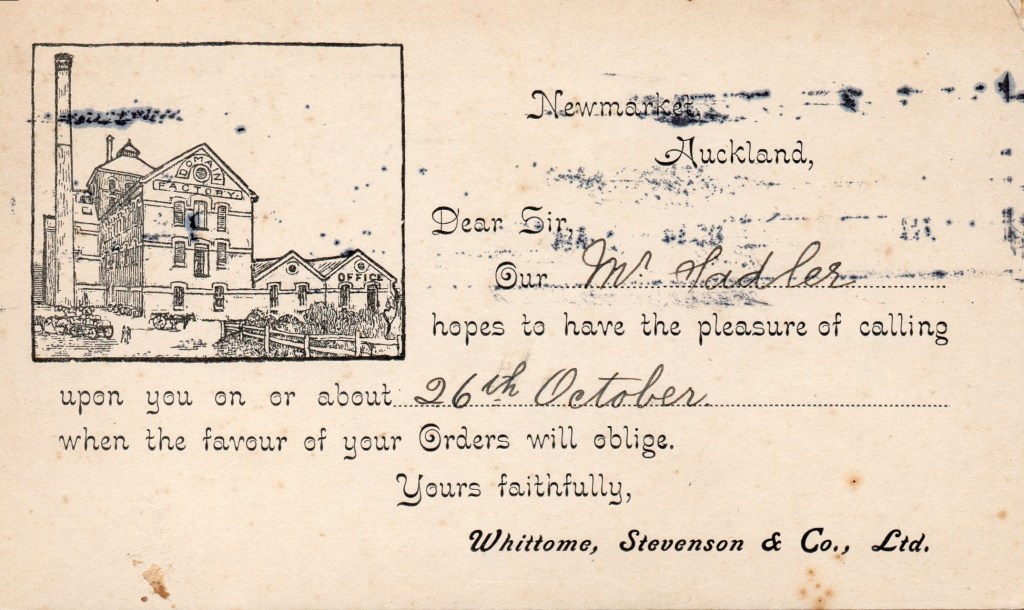 DOMAIN
FACTORY.
OFFICE
Newmarket,
Auckland,
Dear Sir,
Our Mr Sadler
hopes to have the pleasure of calling
upon you on or about 26th October.
when the favour of your Orders will oblige.
Yours faithfully,
Whittome, Stevenson & Co., Ltd.